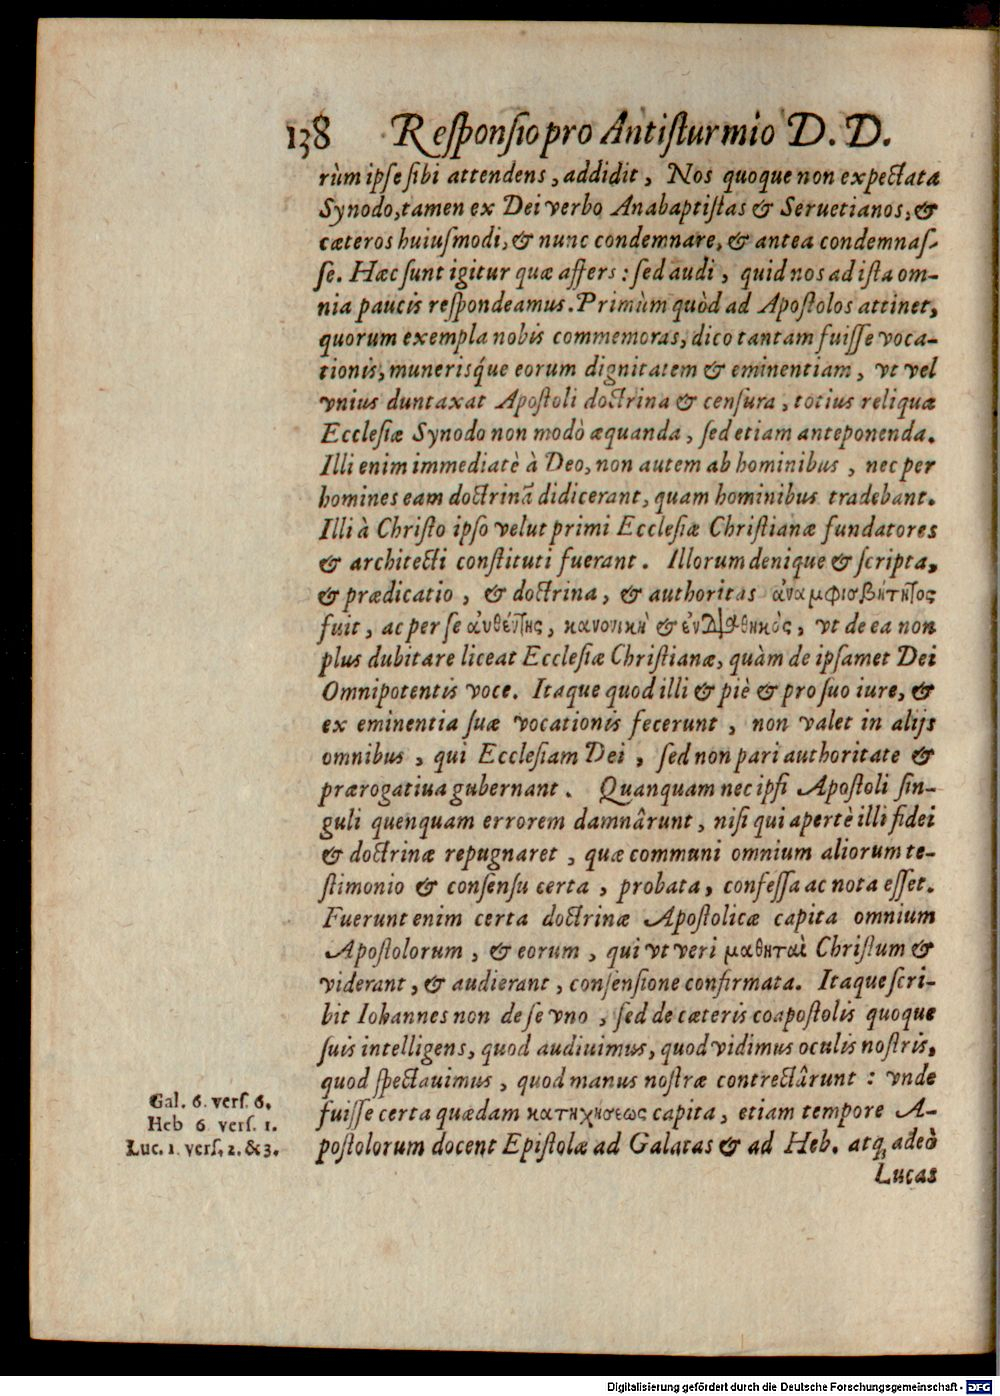 138 Responsio pro Antisturmio D. D.
rùm ipse sibi attendens, addidit, Nos quoque non expectata
Synodo, tamen ex Dei verbo Anabaptistas & Seruetianos, &
cæteros huiusmodi, & nunc condemnare, & antea condemnas-
se. Hæc sunt igitur quæ affers: sed audi, quid nos ad ista om-
nia paucis respondeamus. Primùm quòd ad Apostolos attinet,
quorum exempla nobis commemoras, dico tantam fuisse voca-
tionis, munerisq́ue eorum dignitatem & eminentiam, vt vel
vnius duntaxat Apostoli doctrina & censura, totius reliquæ
Ecclesiæ Synodo non modò æquanda, sed etiam anteponenda.
Illi enim immediatè à Deo, non autem ab hominibus, nec per
homines eam doctrinā didicerant, quam hominibus tradebant.
Illi à Christo ipso velut primi Ecclesiæ Christianæ fundatores
& architecti constituti fuerant. Illorum denique & scripta,
& prædicatio, & doctrina, & authoritas ἀναμφισβήτητος
fuit, ac per se ἀυθέντης, κανονικὴ & ἐνδιαθηκὸς, vt de ea non
plus dubitare liceat Ecclesiæ Christianæ, quàm de ipsamet Dei
Omnipotentis voce. Itaque quod illi & piè & pro suo iure, &
ex eminentia suæ vocationis fecerunt, non valet in alijs
omnibus, qui Ecclesiam Dei, sed non pari authoritate &
prærogatiua gubernant. Quanquam nec ipsi Apostoli sin-
guli quenquam errorem damnârunt, nisi qui apertè illi fidei
& doctrinæ repugnaret, quæ communi omnium aliorum te-
stimonio & consensu certa, probata, confessa ac nota esset.
Fuerunt enim certa doctrinæ Apostolicæ capita omnium
Apostolorum, & eorum, qui vt veri μαθηταὶ Christum &
viderant, & audierant, consensione confirmata. Itaque scri-
bit Iohannes non de se vno, sed de cæteris coapostolis quoque
suis intelligens, quod audiuimus, quod vidimus oculis nostris,
quod spectauimus, quod manus nostræ contrectârunt: vnde
fuisse certa quædam κατηχήσεως capita, etiam tempore A-
postolorum docent Epistolæ ad Galatas & ad Heb. atq; adeò
Lucas
Gal. 6. vers. 6.
Heb 6 vers. 1.
Luc. 1. vers. 2. & 3.
Digitalisierung gefördert durch die Deutsche Forschungsgemeinschaft - DFG